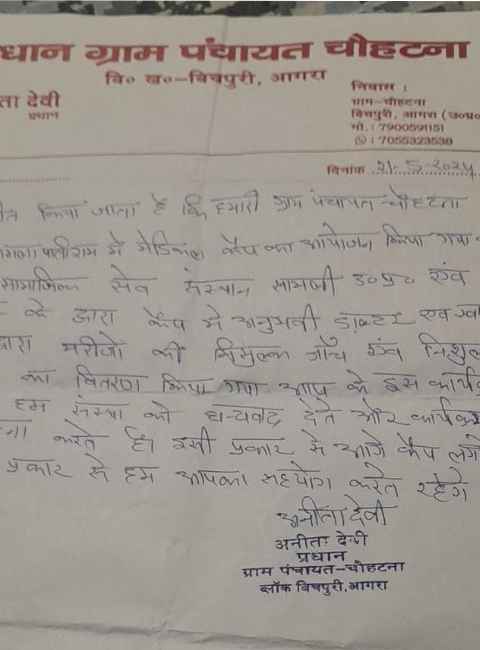 धान ग्राम पंचायत चौहटना
वि० ख०-बिचपुरी, आगरा
ता देवी
प्रधान
निवास :
ग्राम-चौहटना
बिचपुरी, आगरा (उ०प्र०
मो. : 7900591151
: 7055323538
दिनांक 21-5-2024
किया जाता है कि हमारी ग्राम पंचायत चौहटना
में मेडिकल कैप का आयोजन किया गया
सामाजिक सेव संस्थान सामजी उ०प्र० एंव
के द्वारा कैप मे अनुभवी डाक्टर एंव
द्वारा मरीजो की निशुल्क जाँच एंव निशुल
का वितरण किया गया आप के इस कार्यक्र
हम संस्था को धन्यवाद देते और कार्यक्रम
ना करते है। इसी प्रकार से आगे कैप लगे
प्रकार से हम आपका सहयोग करते रहेगे
अनीता देवी
अनीता देवी
प्रधान
ग्राम पंचायत-चौहटना
ब्लॉक बिचपुरी, आगरा